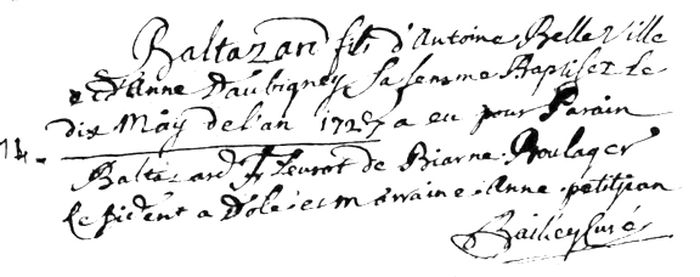 Baltazard fils d'Antoine Belleville
et d'Anne Daubigney sa femme Baptisez le
dix May de l'an 1727 a eu pour Parain
14.
Baltazard Fleurot de Biarne Boulager
Resident a Dole: et marraine: Anne petitjean
Bailley Curé